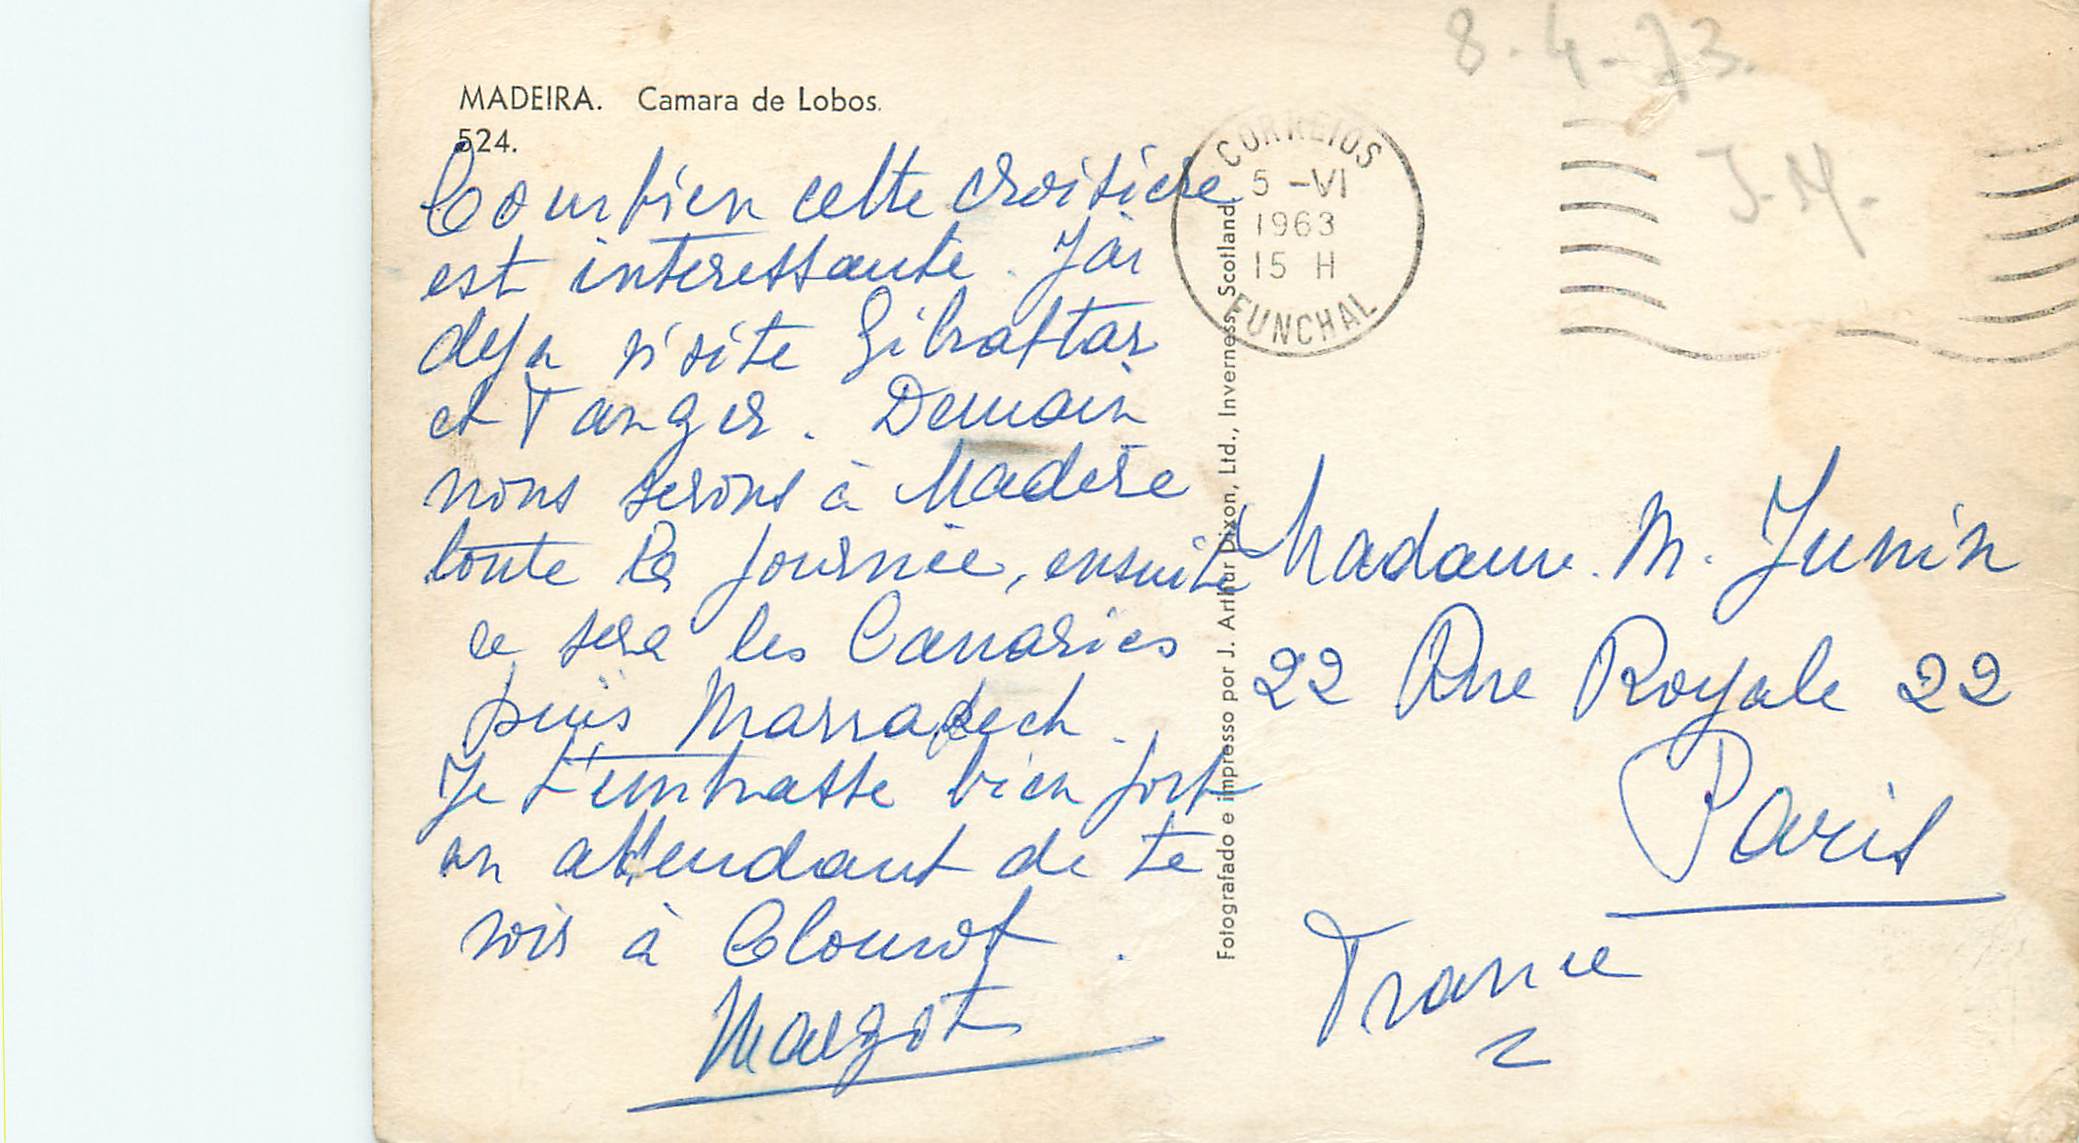 MADEIRA. Camara de Lobos.
524.
Combien cette croisière
est interessante. J'ai
deja visite Gibraltar
et Tanger. Demain
nous serons à Madère
toute la journée, ensuite
ce sera les Canaries
puis Marrakech.
Je t'embrasse bien fort
en attendant de te
voir à
Margot
Fotografado e impresso por J. Arthur Dixon, Ltd., Inverness, Scotland.
8.4.73.
J.M.
CORREIOS
5 -VI
1963
15 H
FUNCHAL
Madame. M. Junin
22 Rue Royale 22
Paris
France